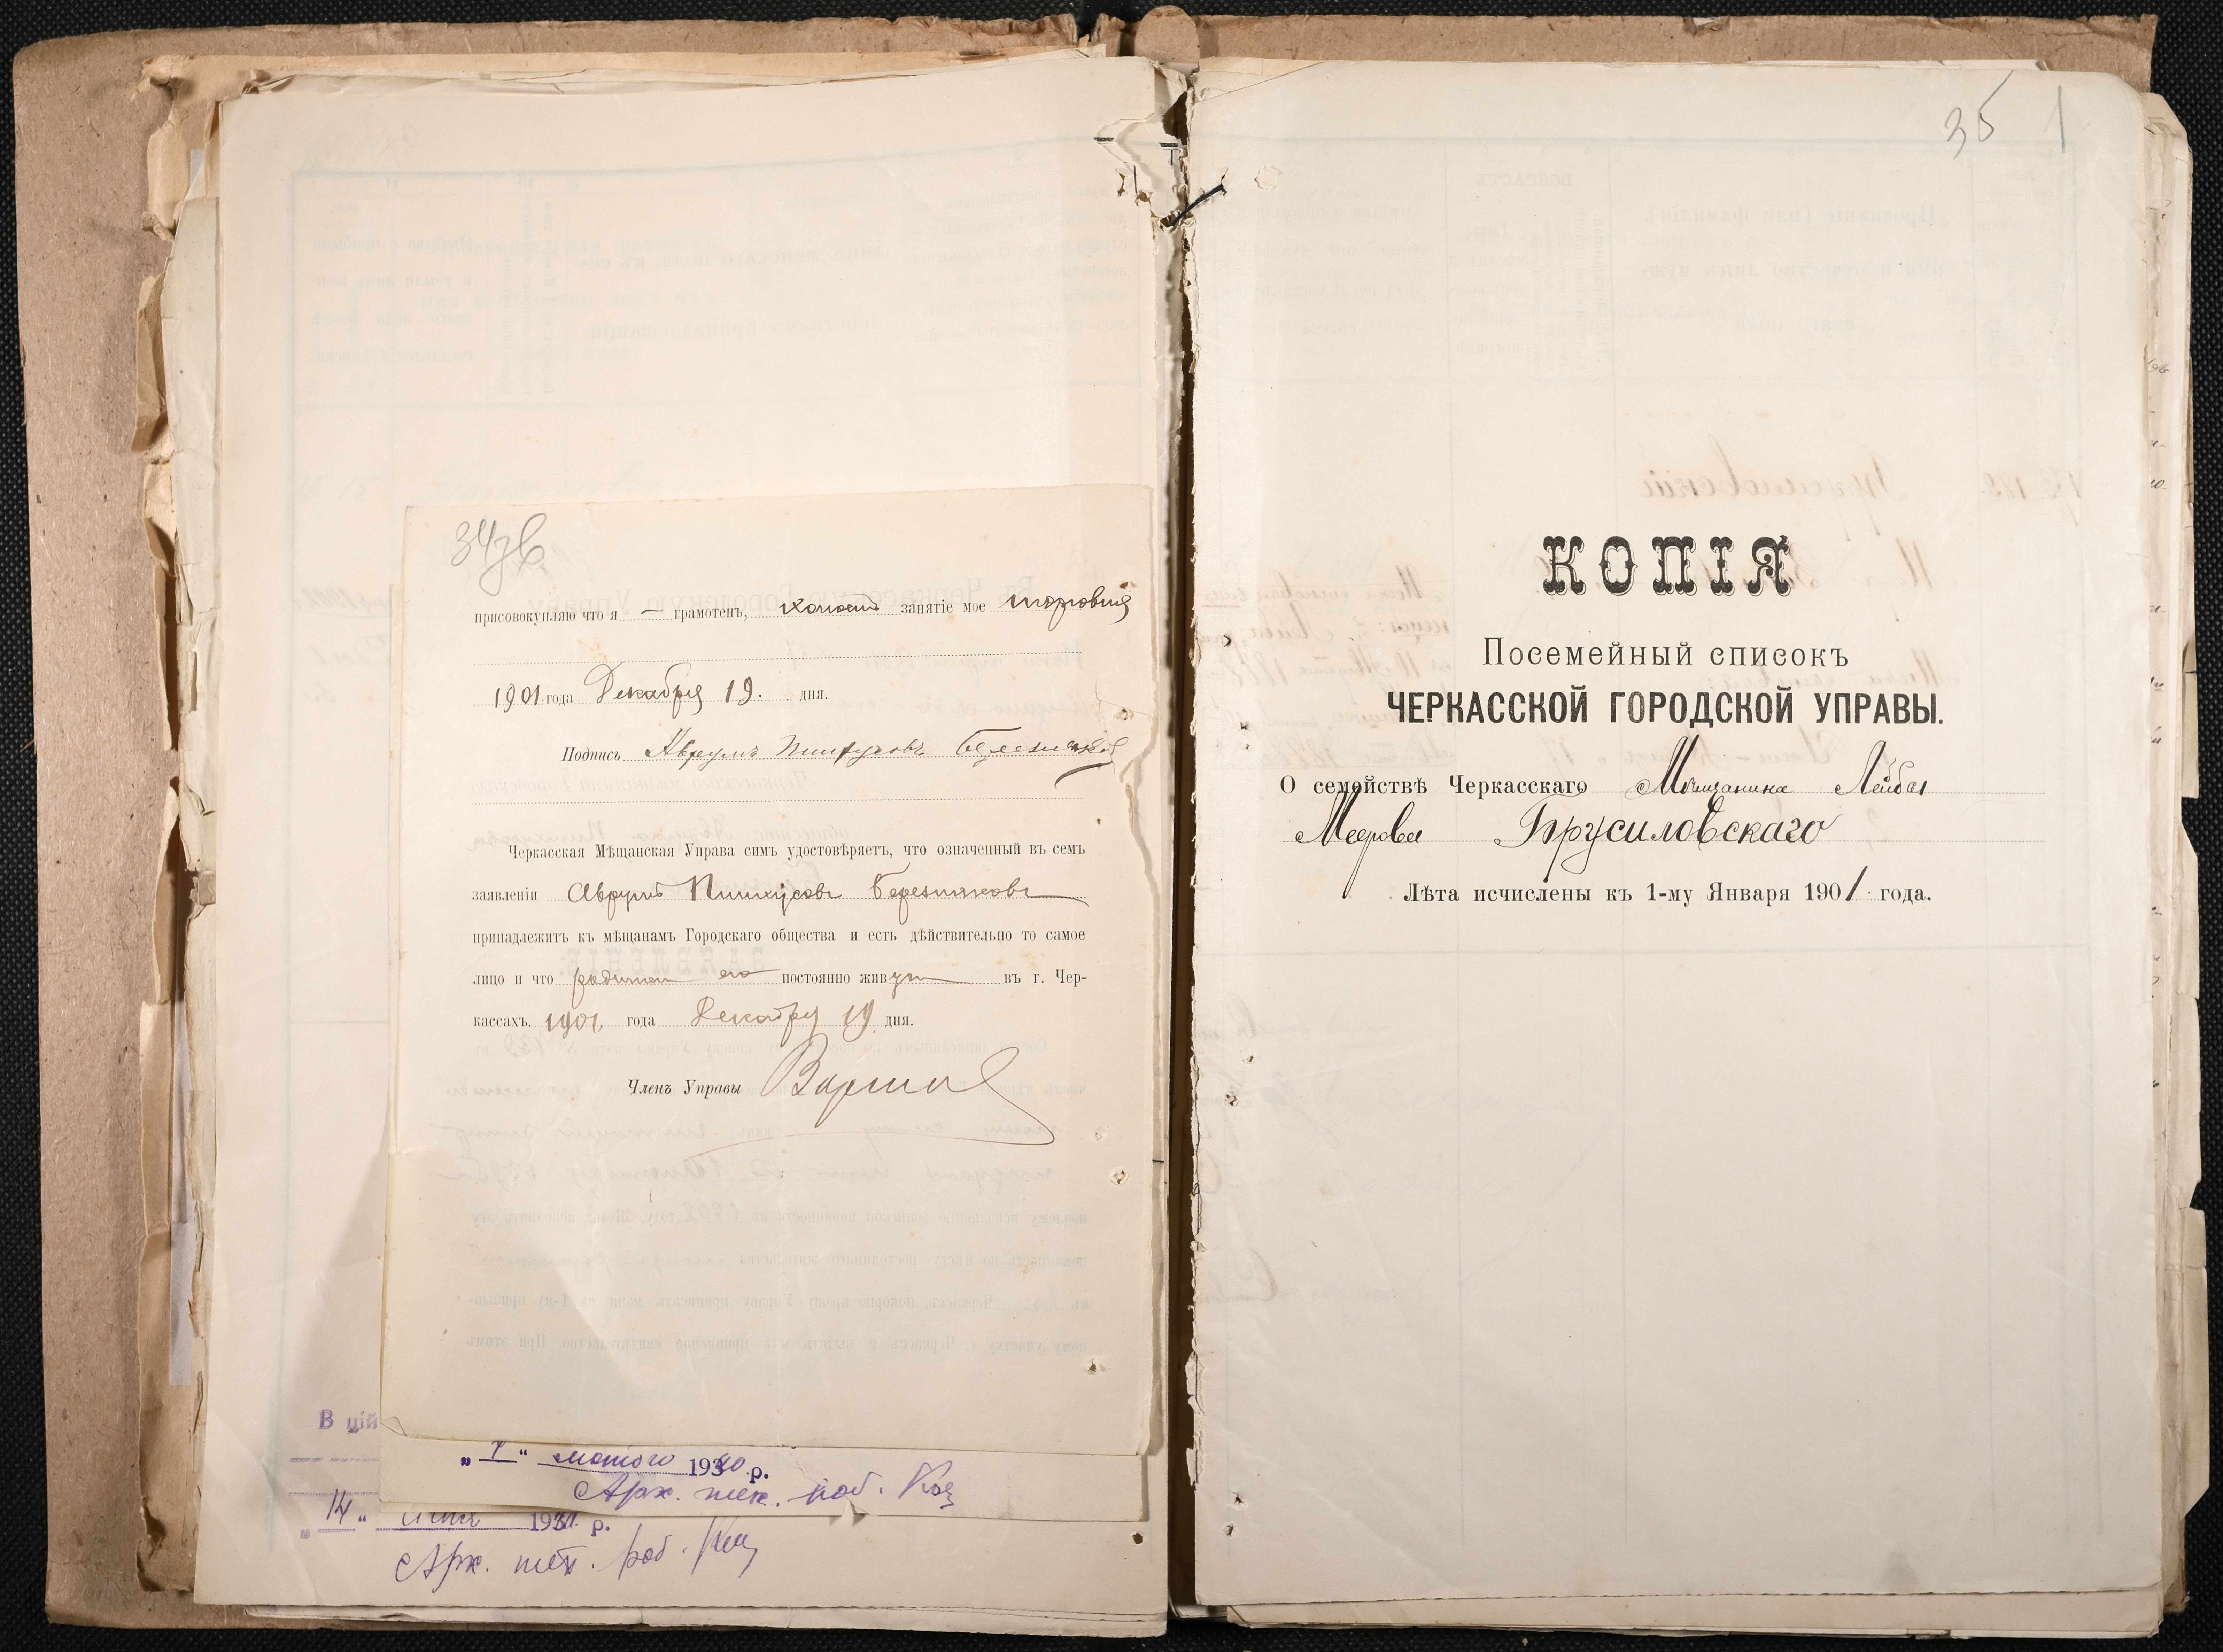 34зв
присовокупляю что я — грамотенъ, холостъ занятіе мое торговля
1901 года Декабря 19. дня.
Подпись Аврумъ Пинхусовъ
Черкасская Мѣщанская Управа симъ удостовѣряетъ, что означенный въ семъ
заявленіи Аврумъ Пинхусовъ Березняковъ
принадлежитъ къ мѣщанамъ Городскаго общества и есть дѣйствительно то самое
лицо и что родители его постоянно живутъ въ г. Чер-
кассахъ. 1901 года Декабря 19 дня.
Членъ Управы
В цій
„ 7 “ лютого 1940 р.
Арх. тех. роб.
„ 14 “ 1941 р.
Арх. тех. роб.
35 1
КОПІЯ
Посемейный списокъ
ЧЕРКАССКОЙ ГОРОДСКОЙ УПРАВЫ.
О семействѣ Черкасскаго Мѣщанина Лейбы
Меерова Брусиловскаго
Лѣта исчислены къ 1-му Января 1901 года.